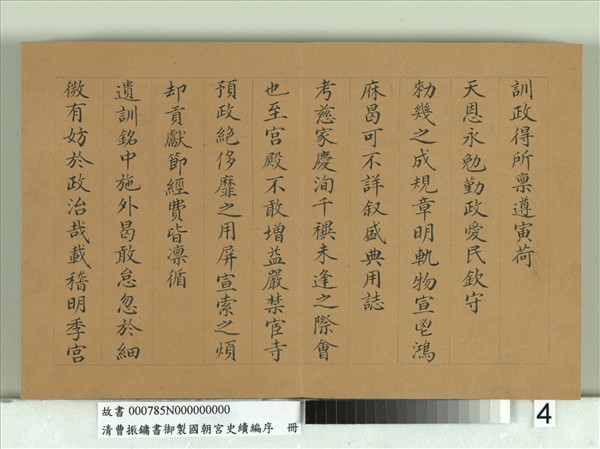 訓政得所禀遵寅荷
天恩永勉勤政愛民欽守
勑幾之成規章明軌物宣鬯鴻
庥曷可不詳叙盛典用誌
考慈家慶洵千禩未逢之際會
也至宮殿不敢增益嚴禁宦寺
預政絶侈靡之用屏宣索之煩
却貢獻節經費皆凛循
遺訓銘中施外曷敢怠忽於細
微有妨於政治哉載稽明季宮
故書 000785N000000000
清曹振鏞書御製國朝宮史續編序 冊
4